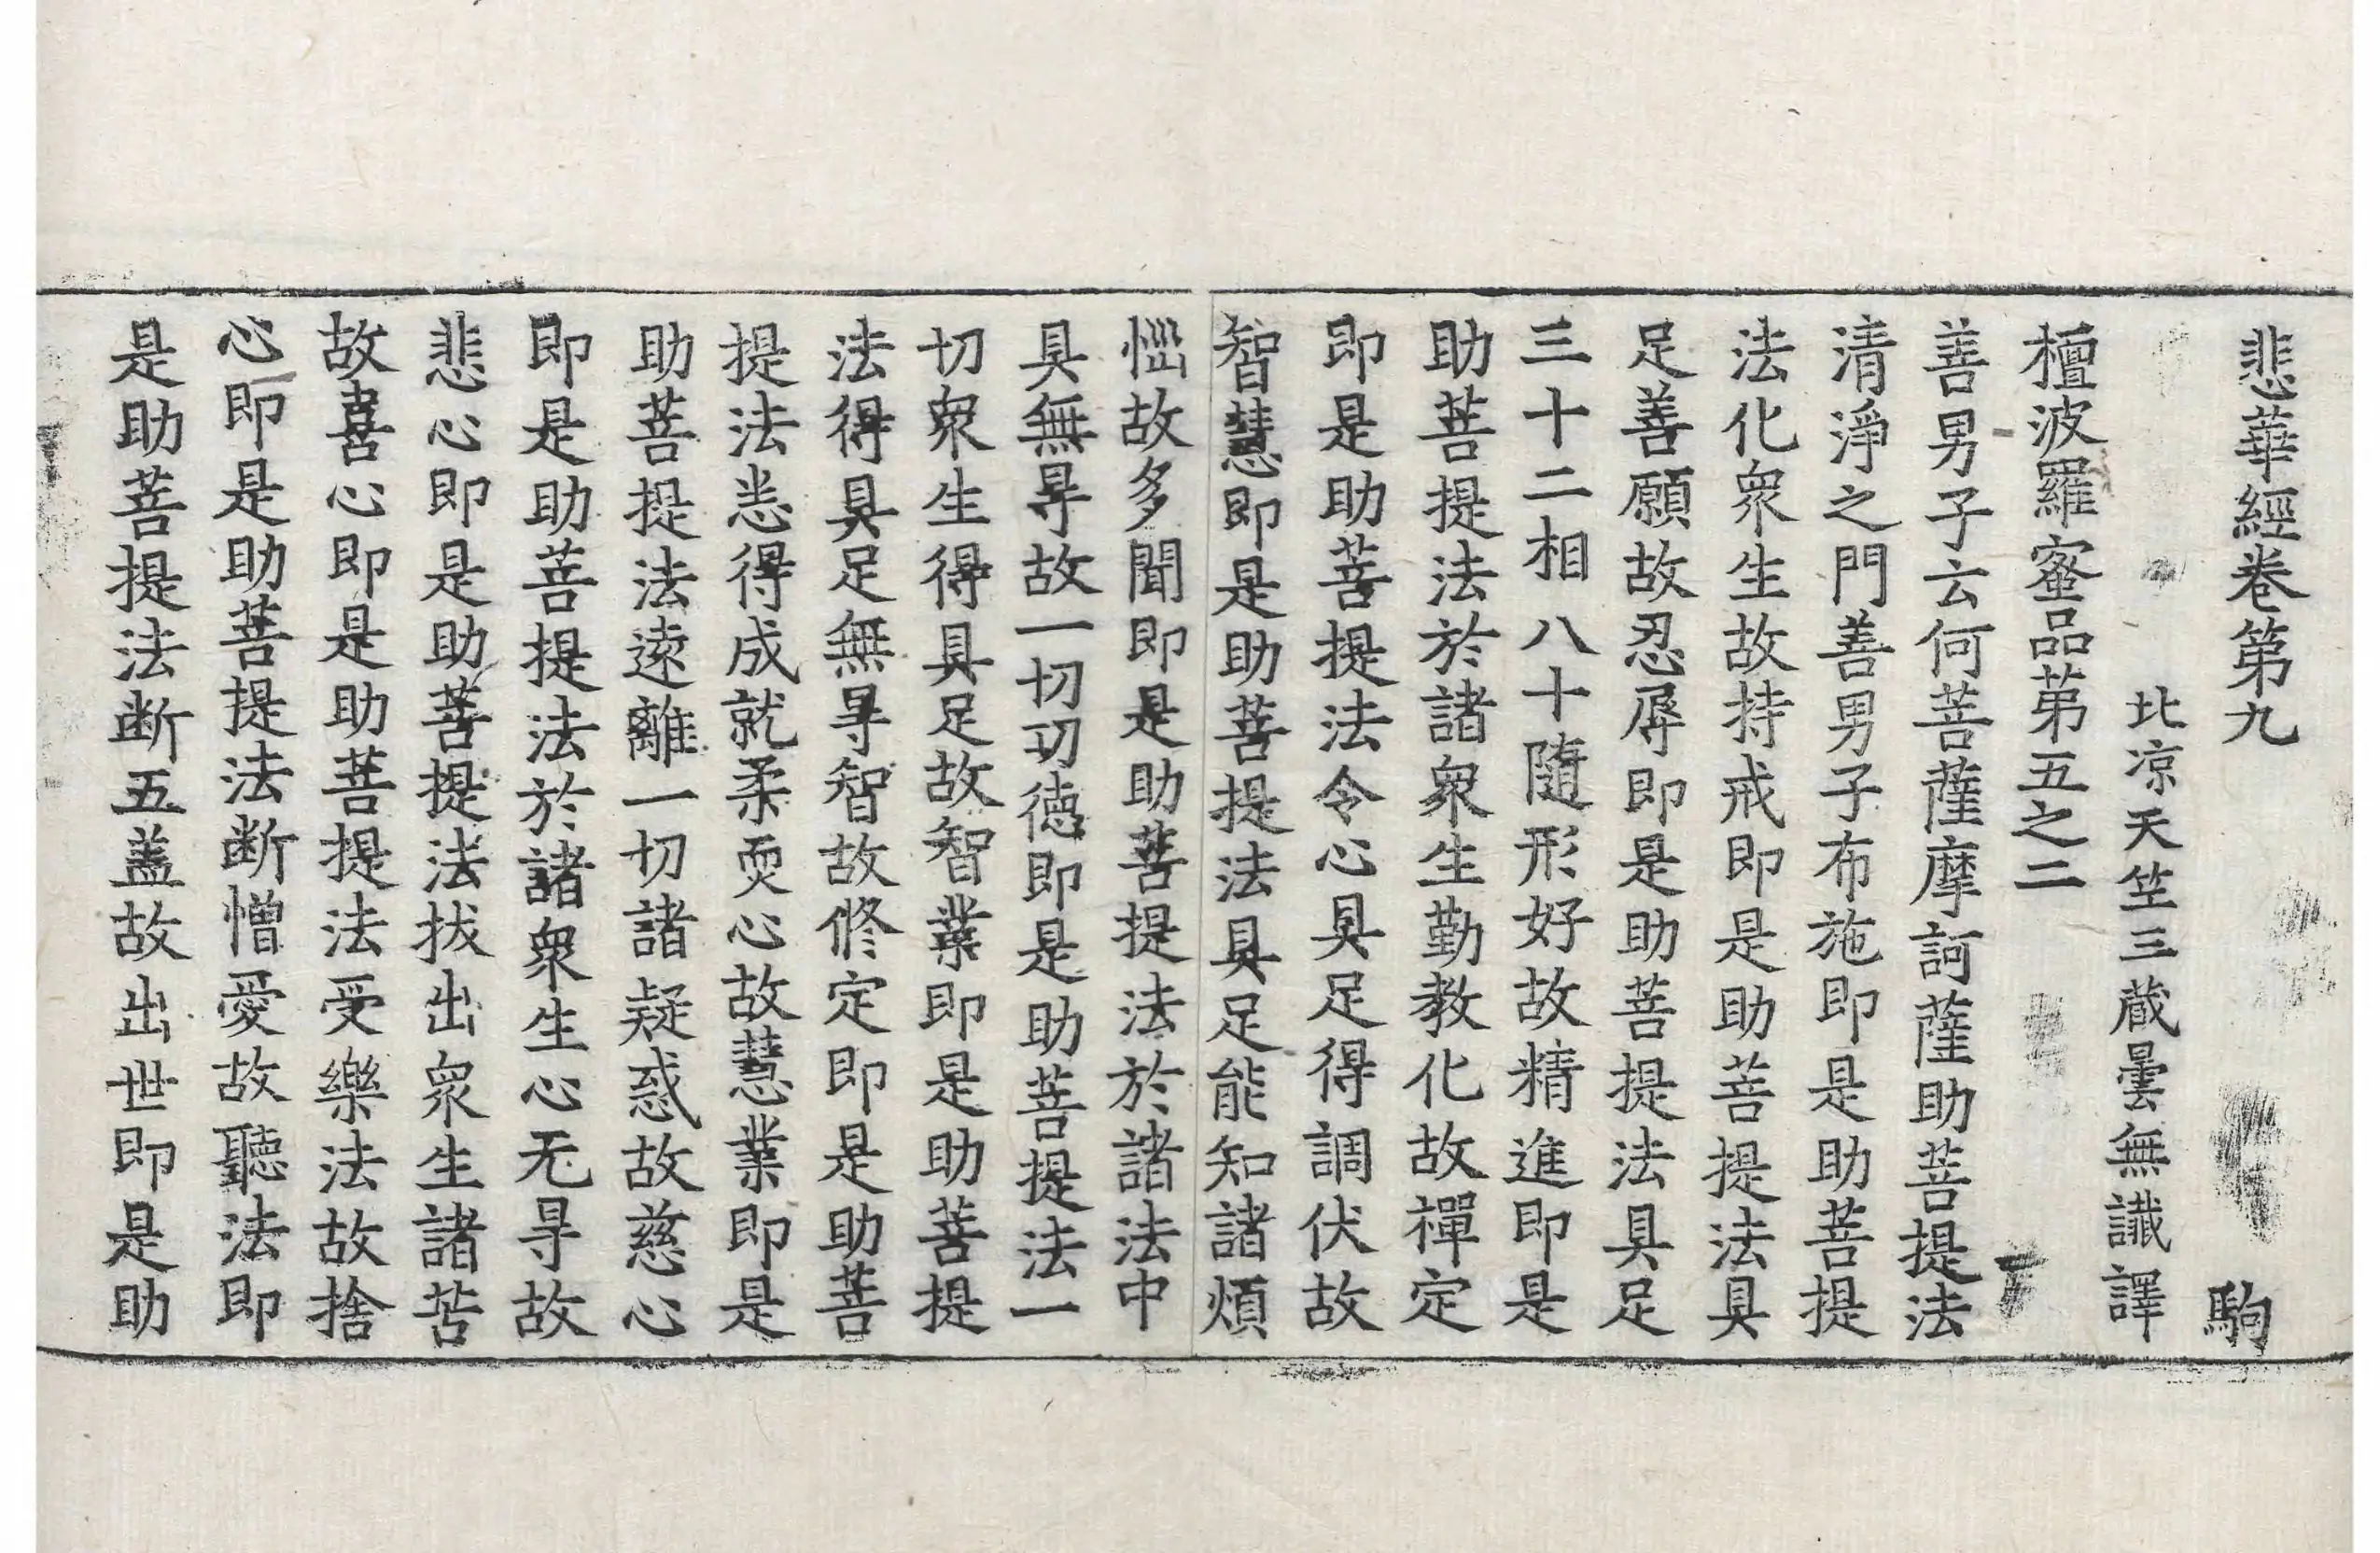 悲華經卷第九 駒
北凉天竺三蔵曇無讖譯
檀波羅蜜品苐五之二
善男子云何菩薩摩訶薩助菩提法
清淨之門善男子布施即是助菩提
法化衆生故持戒即是助菩提法具
足善願故忍辱即是助菩提法具足
三十二相八十隨形好故精進即是
助菩提法於諸衆生勤教化故禪定
即是助菩提法令心具足得調伏故
智慧即是助菩提法具足能知諸煩
惱故多聞即是助菩提法於諸法中
具無㝵故一切㓛德即是助菩提法一
切衆生得具足故智業即是助菩提
法得具足無㝵智故修定即是助菩
提法悉得成就柔耎心故慧業即是
助菩提法遠離一切諸疑惑故慈心
即是助菩提法於諸衆生心无㝵故
悲心即是助菩提法拔出衆生諸苦
故喜心即是助菩提法受樂法故捨
心即是助菩提法断憎愛故聽法即
是助菩提法断五盖故出世即是助